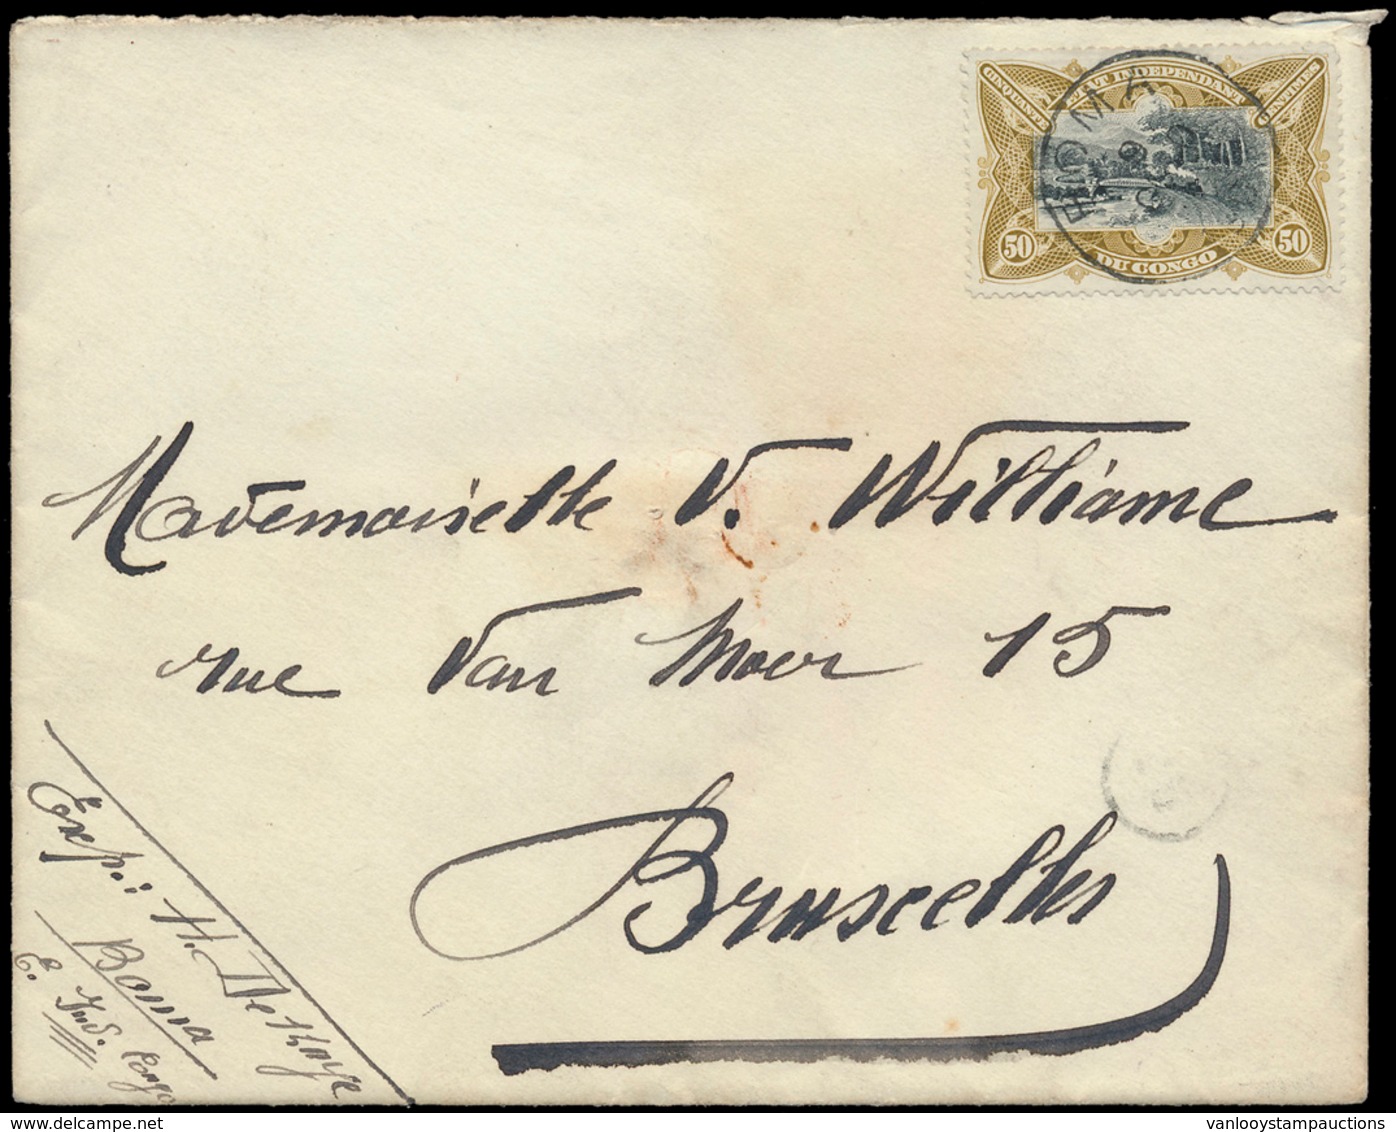 ÉTAT INDÉPENDANT
CINQUANTE
CENTIMES
50
50
DU CONGO
Mademoiselle V. Williame
rue Van Moer 15
Bruxelles
Exp.: H. Dethaye
Boma
E. Ind. Congo
vanlooystampauctions